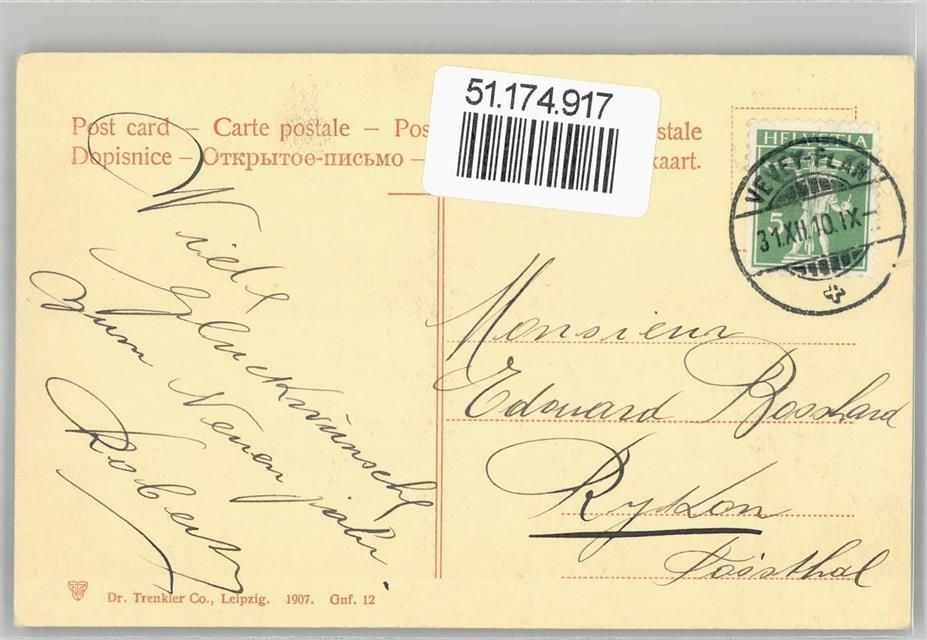 51.174.917
Post card – Carte postale – Pos stale
Dopisnice – Открытое-письмо – kaart.
HELVETIA
5
VEVEY-PLAN
31.XII.10.IX
Viele
Glückwünsche
zum Neuen Jahr.
Robert
Monsieur
Edouard Bosshard
Rykon
Tössthal
Dr. Trenkler Co., Leipzig. 1907. Gnf. 12